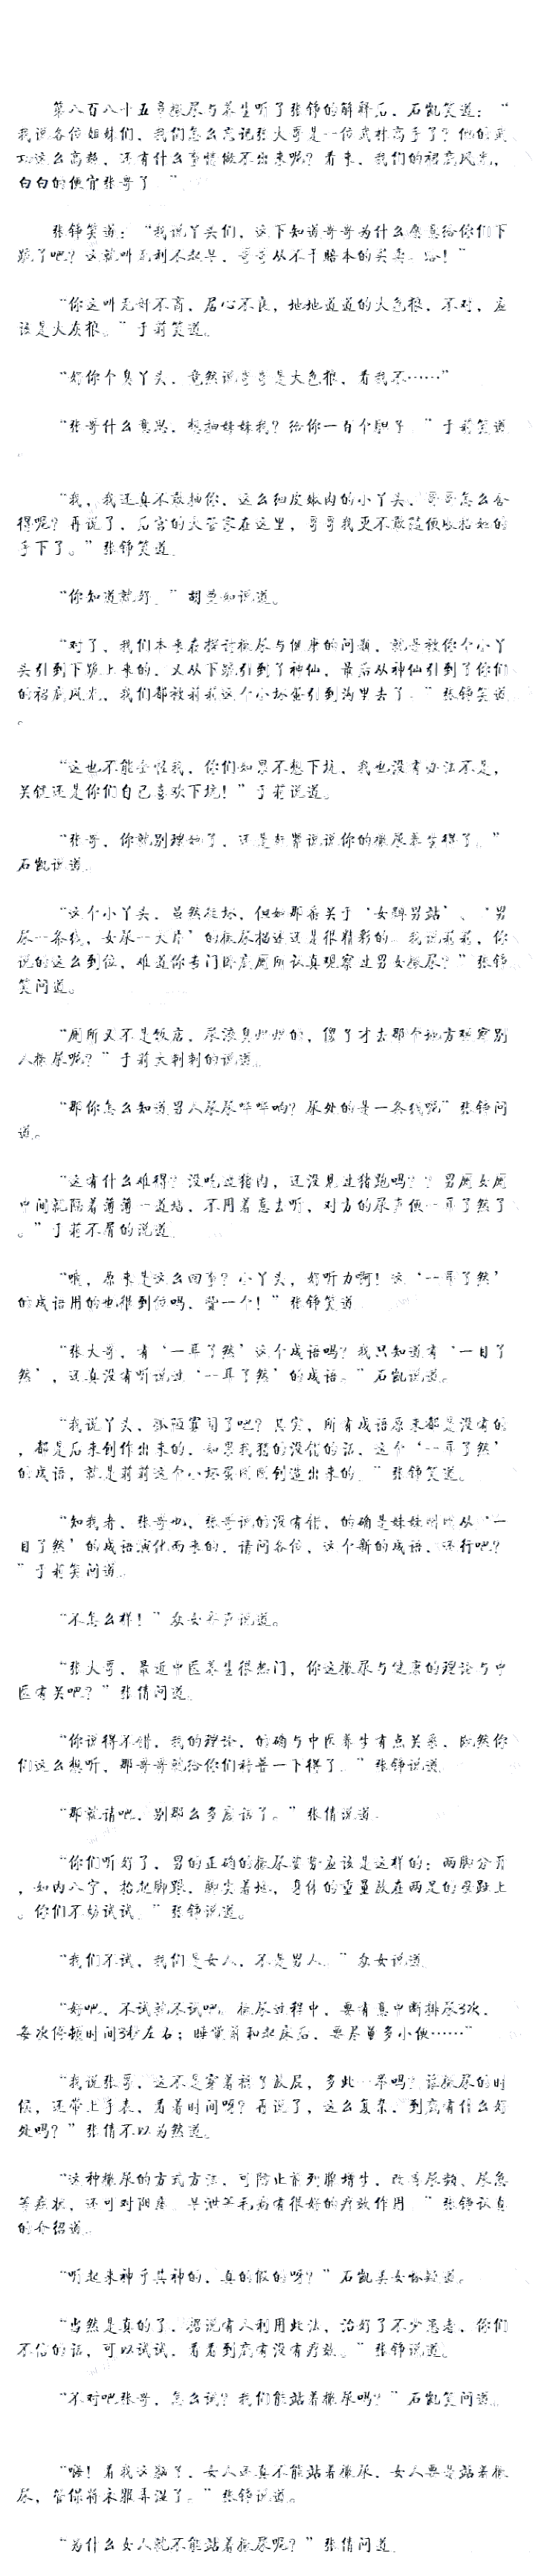 第八百八十五章撒尿与养生听了张铮的解释后，石凯笑道：“
我说各位姐妹们，我们怎么忘记张大哥是一位武林高手了？他的武
功这么高超，还有什么事情做不出来呢？看来，我们的裙底风光，
白白的便宜张哥了。”
张铮笑道：“我说丫头们，这下知道哥哥为什么愿意给你们下
跪了吧？这就叫无利不起早，哥哥从不干赔本的买卖，哈！”
“你这叫无奸不商，居心不良，地地道道的大色狼，不对，应
该是大灰狼。”于莉笑道。
“好你个臭丫头，竟然说哥哥是大色狼，看我不……”
“张哥什么意思，想抽妹妹我？给你一百个胆子。”于莉笑道
。
“我，我还真不敢抽你，这么细皮嫩肉的小丫头，哥哥怎么舍
得呢？再说了，后宫的大管家在这里，哥哥我更不敢随便欺负她的
手下了。”张铮笑道。
“你知道就好。”胡曼如说道。
“对了，我们本来在探讨撒尿与健康的问题，就是被你个小丫
头引到下跪上来的，又从下跪引到了神仙，最后从神仙引到了你们
的裙底风光，我们都被莉莉这个小坏蛋引到沟里去了。”张铮笑道
。
“这也不能全怪我，你们如果不想下坑，我也没有办法不是，
关键还是你们自己喜欢下坑！”于莉说道。
“张哥，你就别理她了，还是赶紧说说你的撒尿养生得了。”
石凯说道。
“这个小丫头，虽然挺坏，但她那番关于‘女蹲男站’、‘男
尿一条线，女尿一大片’的撒尿描述还是很精彩的。我说莉莉，你
说的这么到位，难道你专门卧底厕所认真观察过男女撒尿？”张铮
笑问道。
“厕所又不是饭店，尿液臭烘烘的，傻子才去那个地方观察别
人撒尿呢？”于莉大剌剌的说道。
“那你怎么知道男人尿尿哗哗响？尿处的是一条线呢”张铮问
道。
“这有什么难得？没吃过猪肉，还没见过猪跑吗？？男厕女厕
中间就隔着薄薄一道墙，不用着意去听，对方的尿声便一耳了然了
。”于莉不屑的说道。
“噢，原来是这么回事？小丫头，好听力啊！这‘一耳了然’
的成语用的也很到位吗，赞一个！”张铮笑道。
“张大哥，有‘一耳了然’这个成语吗？我只知道有‘一目了
然’，还真没有听说过‘一耳了然’的成语。”石凯说道。
“我说丫头，孤陋寡闻了吧？其实，所有成语原来都是没有的
，都是后来创作出来的，如果我猜的没错的话，这个‘一耳了然’
的成语，就是莉莉这个小坏蛋刚刚创造出来的。”张铮笑道。
“知我者，张哥也，张哥说的没有错，的确是妹妹刚刚从‘一
目了然’的成语演化而来的，请问各位，这个新的成语，还行吧？
”于莉笑问道。
“不怎么样！”众女齐声说道。
“张大哥，最近中医养生很热门，你这撒尿与健康的理论与中
医有关吧？”张倩问道。
“你说得不错，我的理论，的确与中医养生有点关系，既然你
们这么想听，那哥哥就给你们科普一下得了。”张铮说道。
“那就请吧，别那么多废话了。”张倩说道。
“你们听好了，男的正确的撒尿姿势应该是这样的：两脚分开
，如内八字，抬起脚跟，脚尖着地，身体的重量放在两足的拇趾上
。你们不妨试试。”张铮说道。
“我们不试，我们是女人，不是男人。”众女说道。
“好吧，不试就不试吧。撒尿过程中，要有意中断排尿3次，
每次停顿时间3秒左右；睡觉前和起床后，要尽量多小便……”
“我说张哥，这不是穿着裤子放屁，多此一举吗？谁撒尿的时
候，还带上手表，看着时间呀？再说了，这么复杂，到底有什么好
处吗？”张倩不以为然道。
“这种撒尿的方式方法，可防止前列腺增生，改善尿频、尿急
等症状，还可对阳痿、早泄等毛病有很好的疗效作用。”张铮认真
的介绍道。
“听起来神乎其神的，真的假的呀？”石凯美女怀疑道。
“当然是真的了，据说有人利用此法，治好了不少患者，你们
不信的话，可以试试，看看到底有没有疗效。”张铮说道。
“不对吧张哥，怎么试？我们能站着撒尿吗？”石凯笑问道。
“嗨！看我这脑子，女人还真不能站着撒尿，女人要是站着撒
尿，管保将衣服弄湿了。”张铮说道。
“为什么女人就不能站着撒尿呢？”张倩问道。